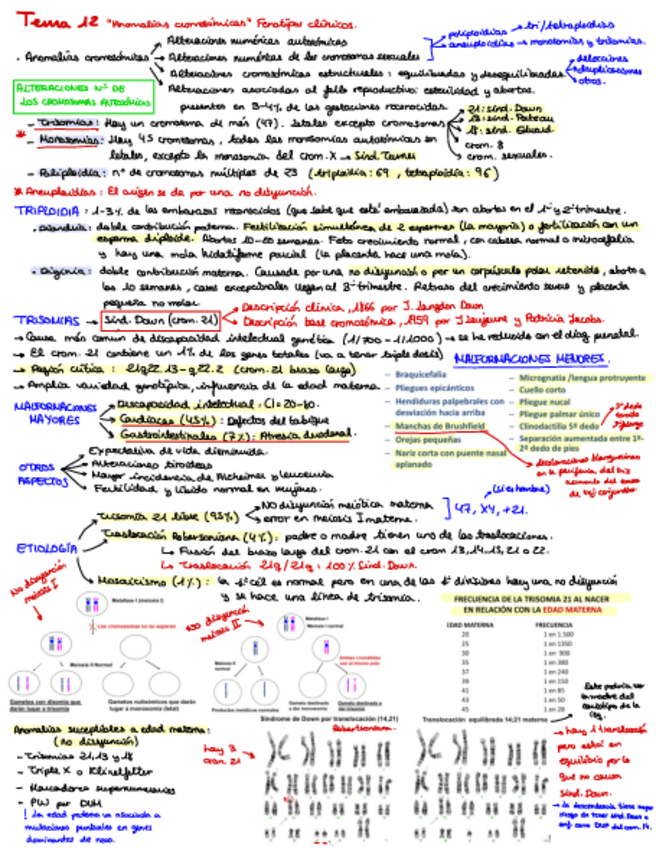 Tema 12 "Anomalías cromosómicas" Fenotipos clínicos.
. Anomalías cromosómicas
Alteraciones numéricas autosómicas
Alteraciones numéricas de los cromosomas sexuales
poliploidías → tri/tetraploidías
aneuploidías → monosomías y trisomías.
Alteraciones cromosómicas estructurales: equilibradas y desequilibradas
delecciones
duplicaciones
otras.
Alteraciones asociadas al fallo reproductivo: esterilidad y abortos.
ALTERACIONES Nº DE
LOS CROMOSOMAS AUTOSÓMICOS
presentes en 3-4% de las gestaciones reconocidas.
- Trisomías: Hay un cromosoma de más (47). letales excepto cromosomas
21: sínd. Down
13: sínd. Patau
18: sínd. Edward.
crom. 8
crom. sexuales.
* - Monosomías: Hay 45 cromosomas, todas las monosomías autosómicas son
letales, excepto la monosomía del crom. X → Sínd. Turner
- Poliploidía: nº de cromosomas múltiplos de 23 (triploidía: 69, tetraploidía: 96)
* Aneuploidías: El origen se da por una no disyunción.
TRIPLOIDIA: 1-3% de los embarazos reconocidos (que sabe que está embarazada) son abortos en el 1er y 2º trimestre.
. Diandria: doble contribución paterna. Fertilización simultánea de 2 espermas (la mayoría) o fertilización con un
esperma diploide. Abortos 10-20 semanas. Feto crecimiento normal, con cabeza normal o microcefalia
y hay una mola hidatiforme parcial (la placenta hace una mola).
. Diginia: doble contribución materna. Causada por una no disyunción o por un corpúsculo polar retenido, aborto a
las 10 semanas, casos excepcionales llegan al 3er trimestre. Retraso del crecimiento severo y placenta
pequeña no molar.
TRISOMÍAS → Sínd. Down (crom. 21)
Descripción clínica, 1866 por J. Langdon Down
Descripción base cromosómica, 1959 por J Lejeune y Patricia Jacobs.
→ Causa más común de discapacidad intelectual genética (1/700 - 1/1000) → se ha reducido en el diag. prenatal.
→ El crom. 21 contiene un 1% de los genes totales (va a tener triple dosis)
→ Región crítica: 21q22.13-q22.2 (crom. 21 brazo largo)
→ Amplia variedad genotípica, influencia de la edad materna
MALFORMACIONES MENORES.
- Braquicefalia
- Pliegues epicánticos
- Hendiduras palpebrales con
desviación hacia arriba
- Manchas de Brushfield
- Orejas pequeñas
- Nariz corta con puente nasal
aplanado
- Micrognatia /lengua protruyente
- Cuello corto
- Pliegue nucal
- Pliegue palmar único
- Clinodactilia 5º dedo
- Separación aumentada entre 1º-
2º dedo de pies
MALFORMACIONES
MAYORES
Discapacidad intelectual: CI = 20-60.
Cardíacas (45%): Defectos del tabique
Gastrointestinales (7%): Atresia duodenal.
OTROS
ASPECTOS
Expectativa de vida disminuida.
Alteraciones tiroideas
Mayor incidencia de Alzheimer y leucemia
Fertilidad y libido normal en mujeres.
ETIOLOGÍA
Trisomía 21 libre (95%)
NO disyunción meiótica materna
error en meiosis I materna.
47, XY, +21.
Traslocación Robertsoniana (4%): padre o madre tienen uno de las traslocaciones.
↳ Fusión del brazo largo del crom. 21 con el crom 13,14,15,21 o 22.
↳ Traslocación 21q/21q: 100% Sínd. Down.
Mosaicismo (1%): la 1ª cél es normal pero en una de las 1ª divisiones hay una no disyunción
y se hace una línea de trisomía.
No disyunción
meiosis I
Metafase I (meiosis I)
Los cromosomas no se separan
Meiosis II Normal
Gametos con disomía que
darán lugar a trisomía
Gametos nulisómicos que darán
lugar a monosomía (letal)
no disyunción
meiosis II
Metafase I
Meiosis I normal
Meiosis II
normal
Productos meióticos normales
FRECUENCIA DE LA TRISOMIA 21 AL NACER
EN RELACIÓN CON LA EDAD MATERNA
EDAD MATERNA FRECUENCIA
20 1 en 1.500
25 1 en 1350
30 1 en 900
35 1 en 380
37 1 en 240
39 1 en 150
41 1 en 85
43 1 en 50
45 1 en 28
Síndrome de Down por translocación (14,21)
Robertsoniana
Translocación equilibrada 14;21 materna
Anomalías suceptibles a edad materna:
(no disyunción)
- Trisomías 21, 13 y 18
- Triple X o Klinelfelter
- Marcadores supernumerarios
- PW por DUM
! La edad paterna va asociada a
mutaciones puntuales en genes
dominantes de novo.
hay 3
crom. 21
hay 1 translocación
pero está en
equilibrio por lo
que no causa
Sínd. Down.